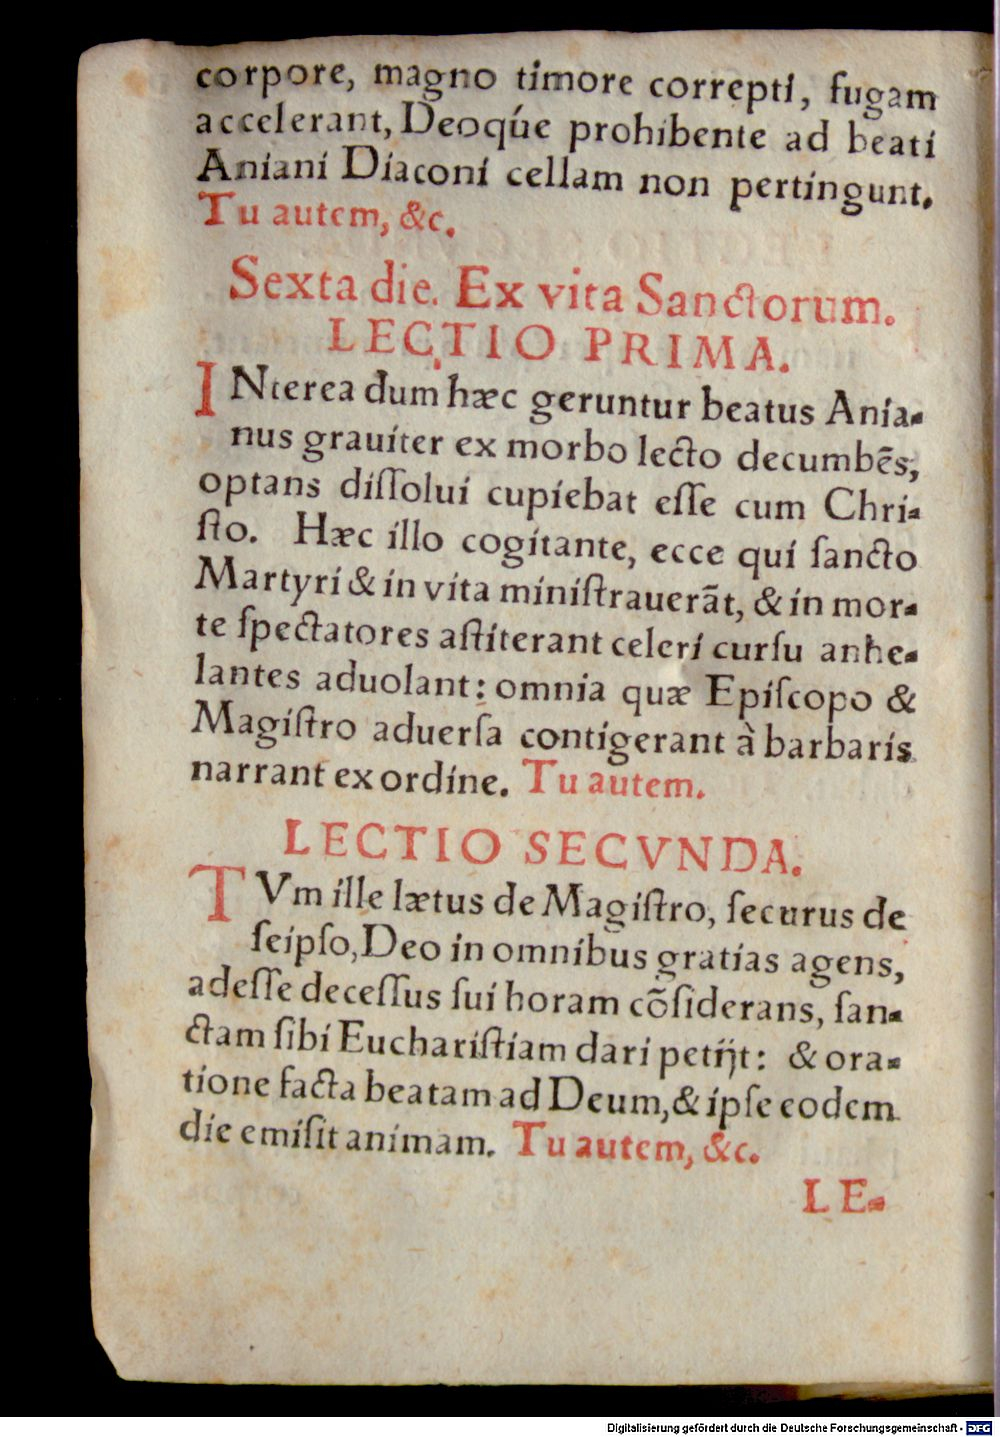 corpore, magno timore correpti, fugam
accelerant, Deoqúe prohibente ad beati
Aniani Diaconi cellam non pertingunt.
Tu autem, &c.
Sexta die. Ex vita Sanctorum.
LECTIO PRIMA.
INterea dum hæc geruntur beatus Ania-
nus grauiter ex morbo lecto decumbẽs,
optans diſſolui cupiebat eſſe cum Chri-
ſto. Hæc illo cogitante, ecce qui ſancto
Martyri & in vita miniſtrauerãt, & in mor-
te ſpectatores aſtiterant celeri curſu anhe-
lantes aduolant: omnia quæ Epiſcopo &
Magiſtro aduerſa contigerant à barbaris
narrant ex ordine. Tu autem.
LECTIO SECVNDA.
TVm ille lætus de Magiſtro, ſecurus de
ſeipſo, Deo in omnibus gratias agens,
adeſſe deceſſus ſui horam cõſiderans, ſan-
ctam ſibi Euchariſtiam dari petijt: & ora-
tione facta beatam ad Deum, & ipſe eodem
die emiſit animam. Tu autem, &c.
LE-
Digitalisierung gefördert durch die Deutsche Forschungsgemeinschaft - DFG